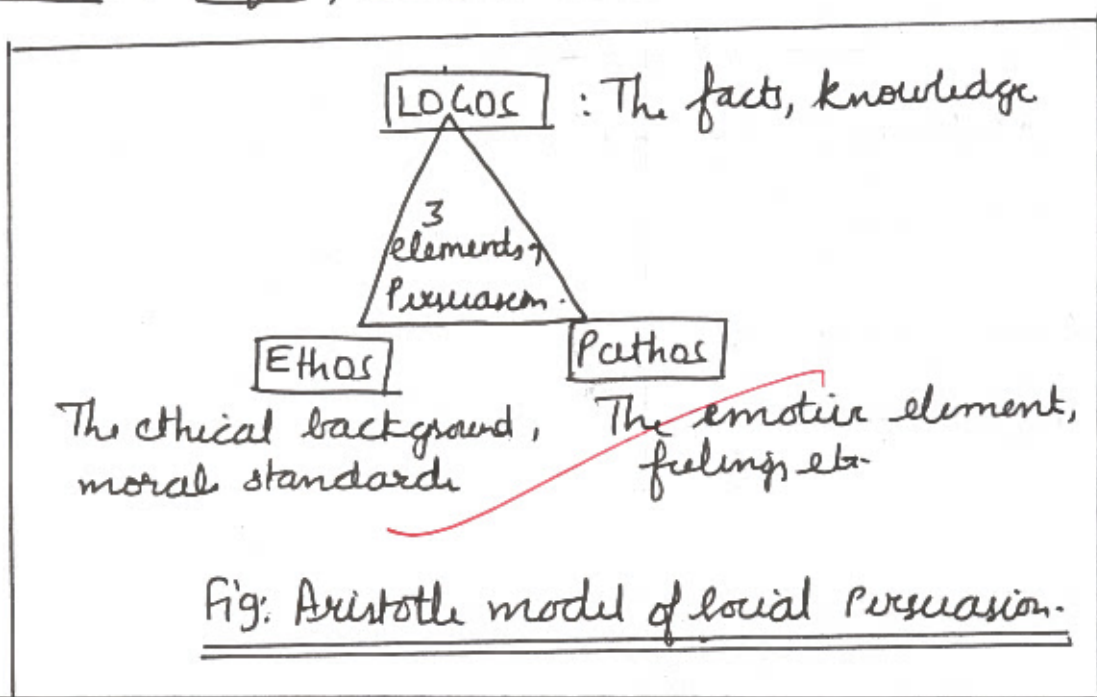 LOGOS : The facts, knowledge
3
elements of
Persuasion.
Ethos
Pathos
The ethical background,
moral standards
The emotive element,
feelings, etc.
Fig: Aristotle model of social Persuasion.